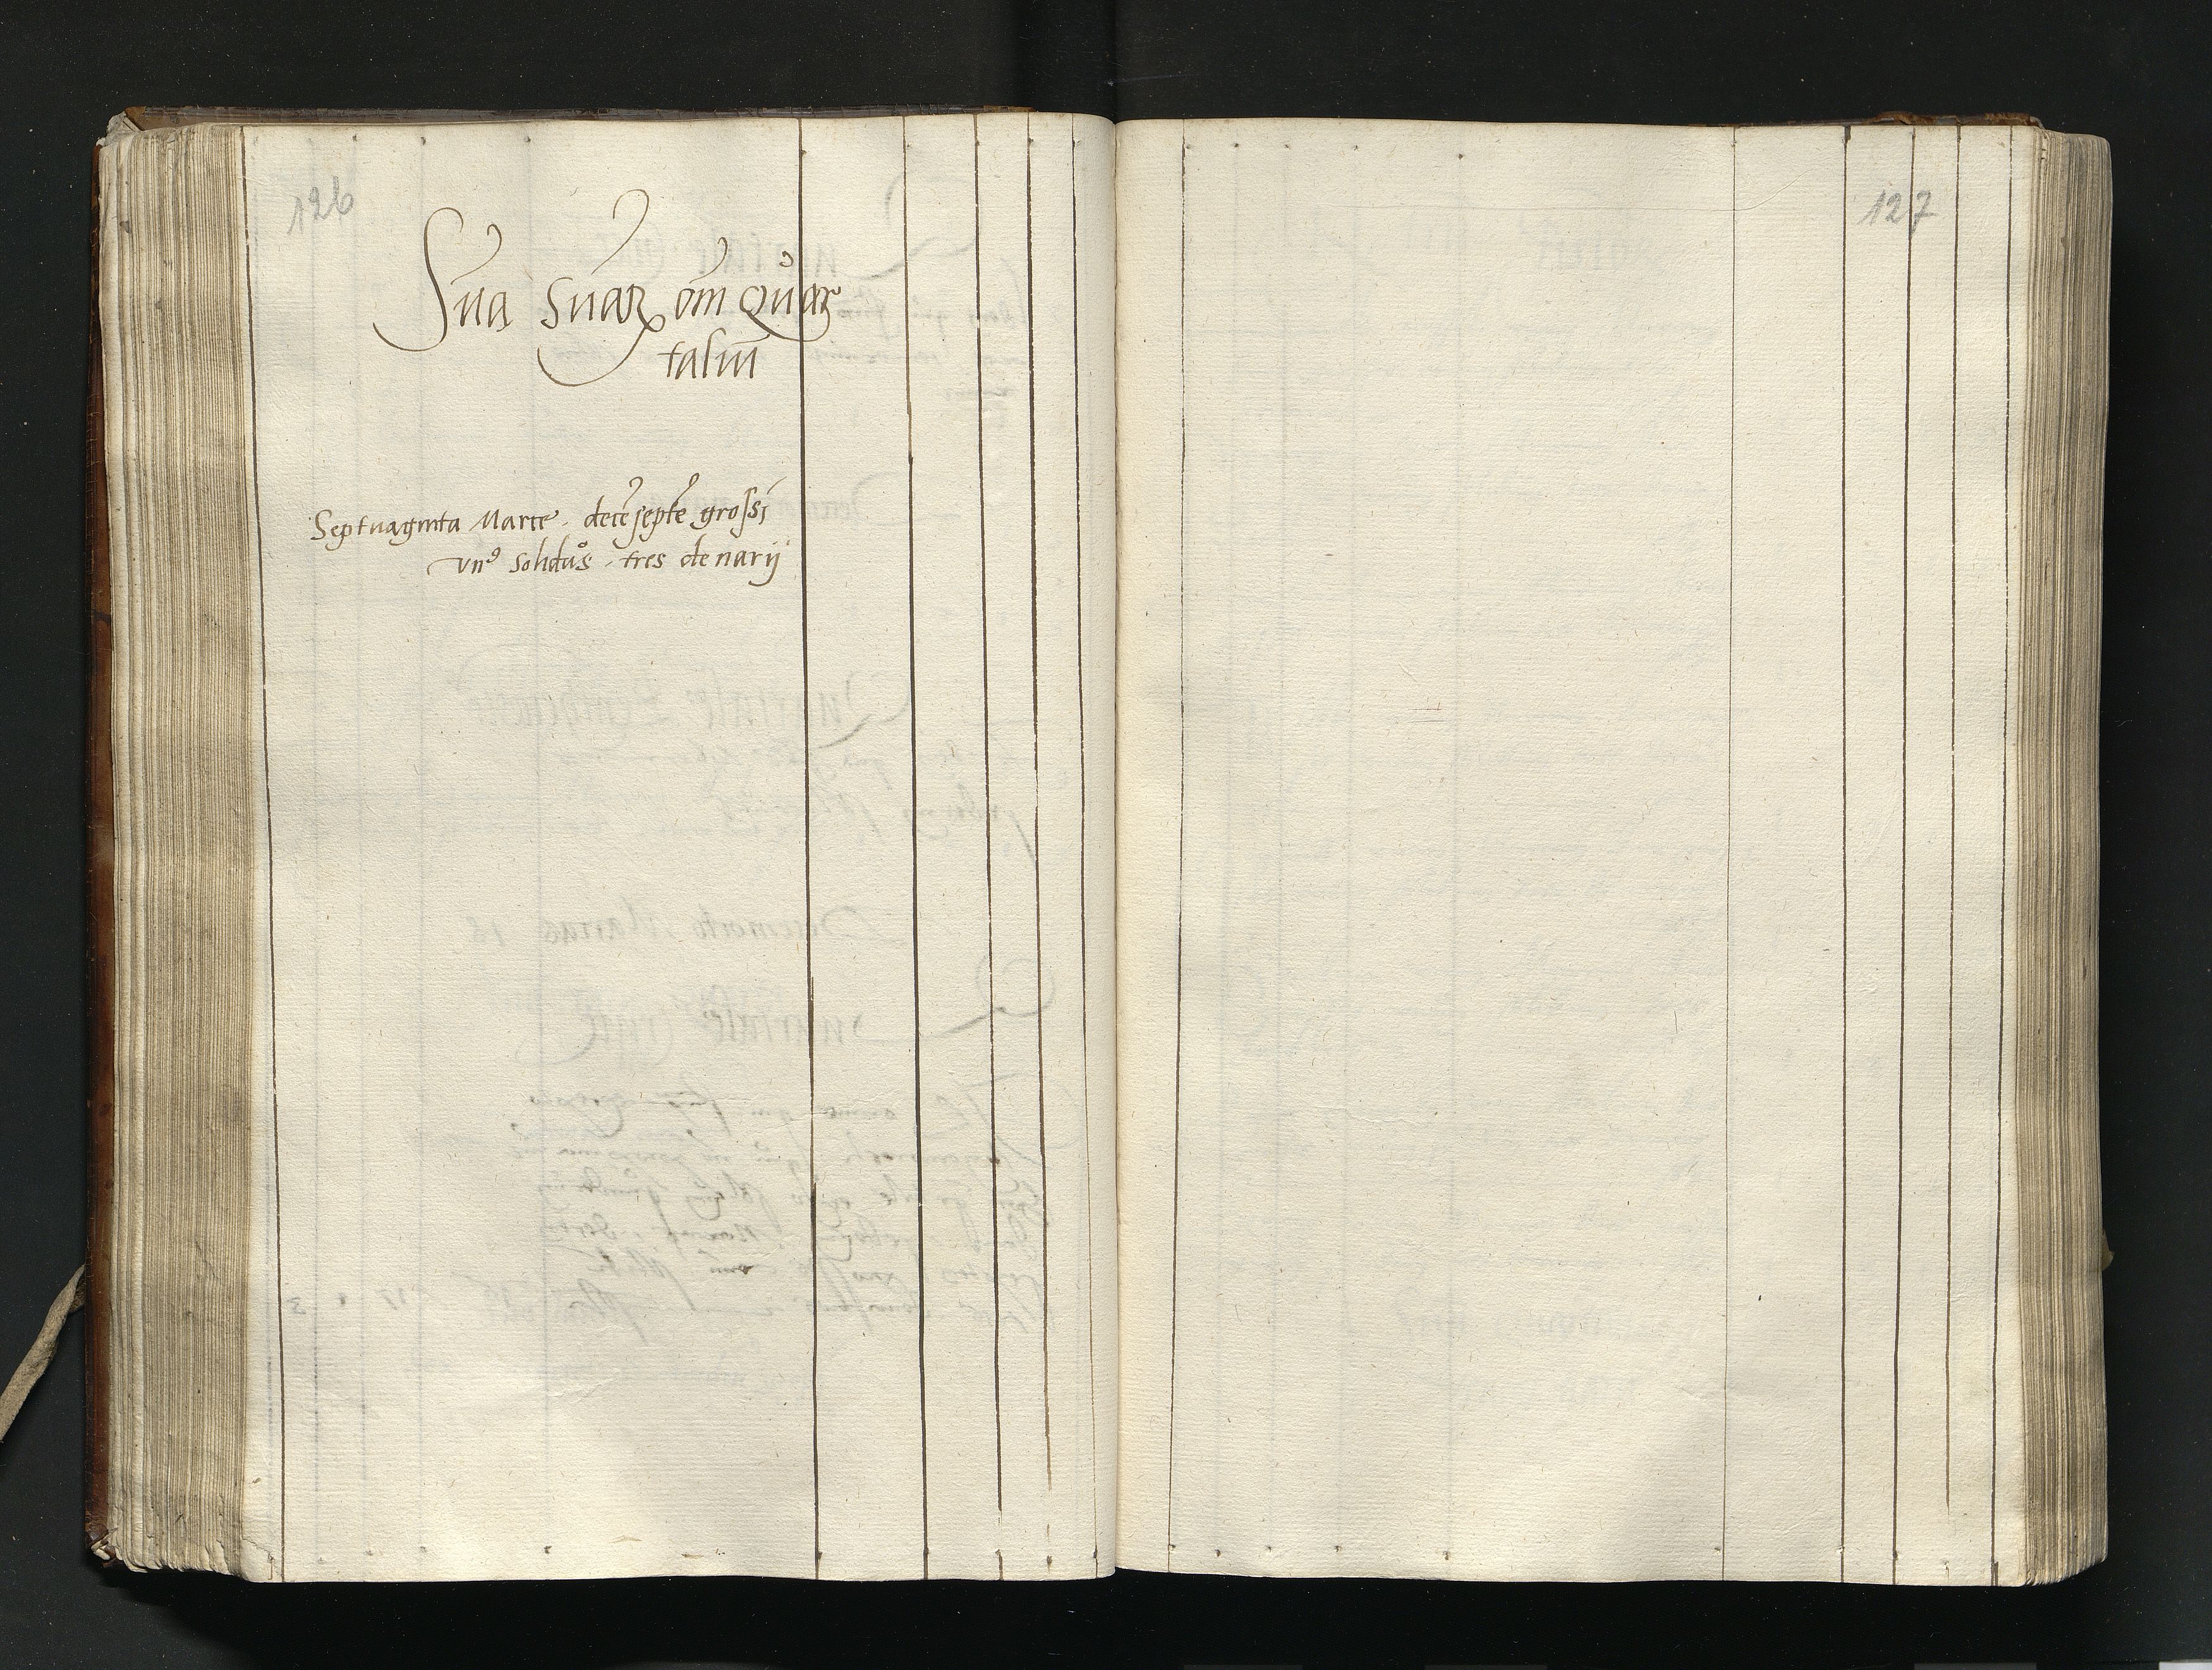 126
Sūa sūaꝝ om̄ Quar
taliū
Septuaginta Marce. decē septē grossi
vnꝰ solidus. tres denarij
127